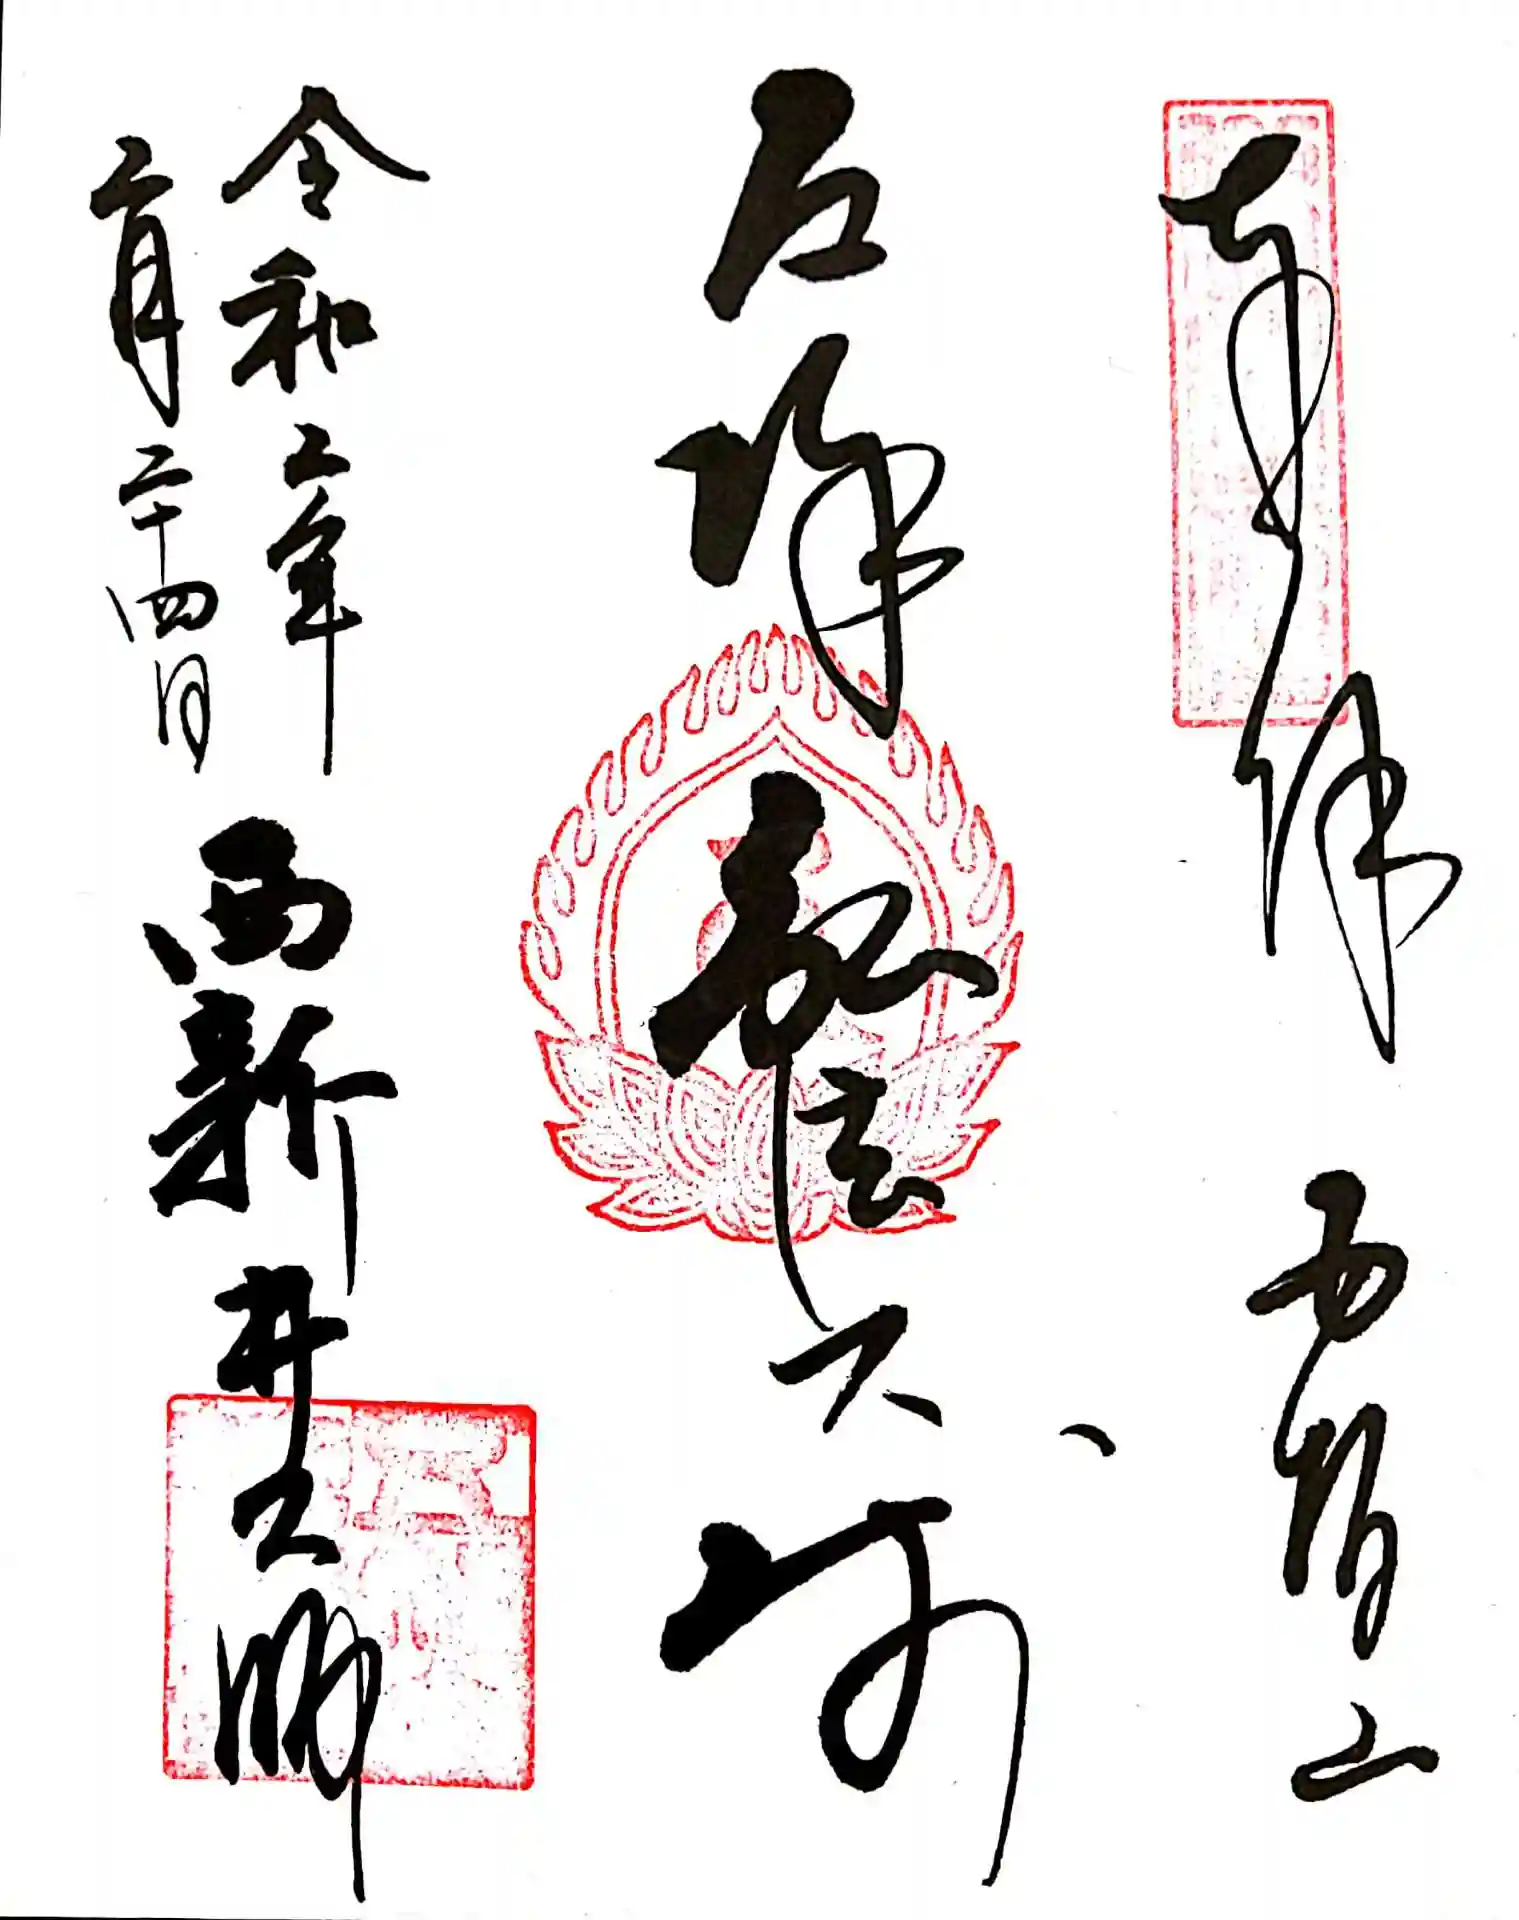 奉拝 五智山
厄除弘法大師
令和二年
二月二十四日
西新井大師